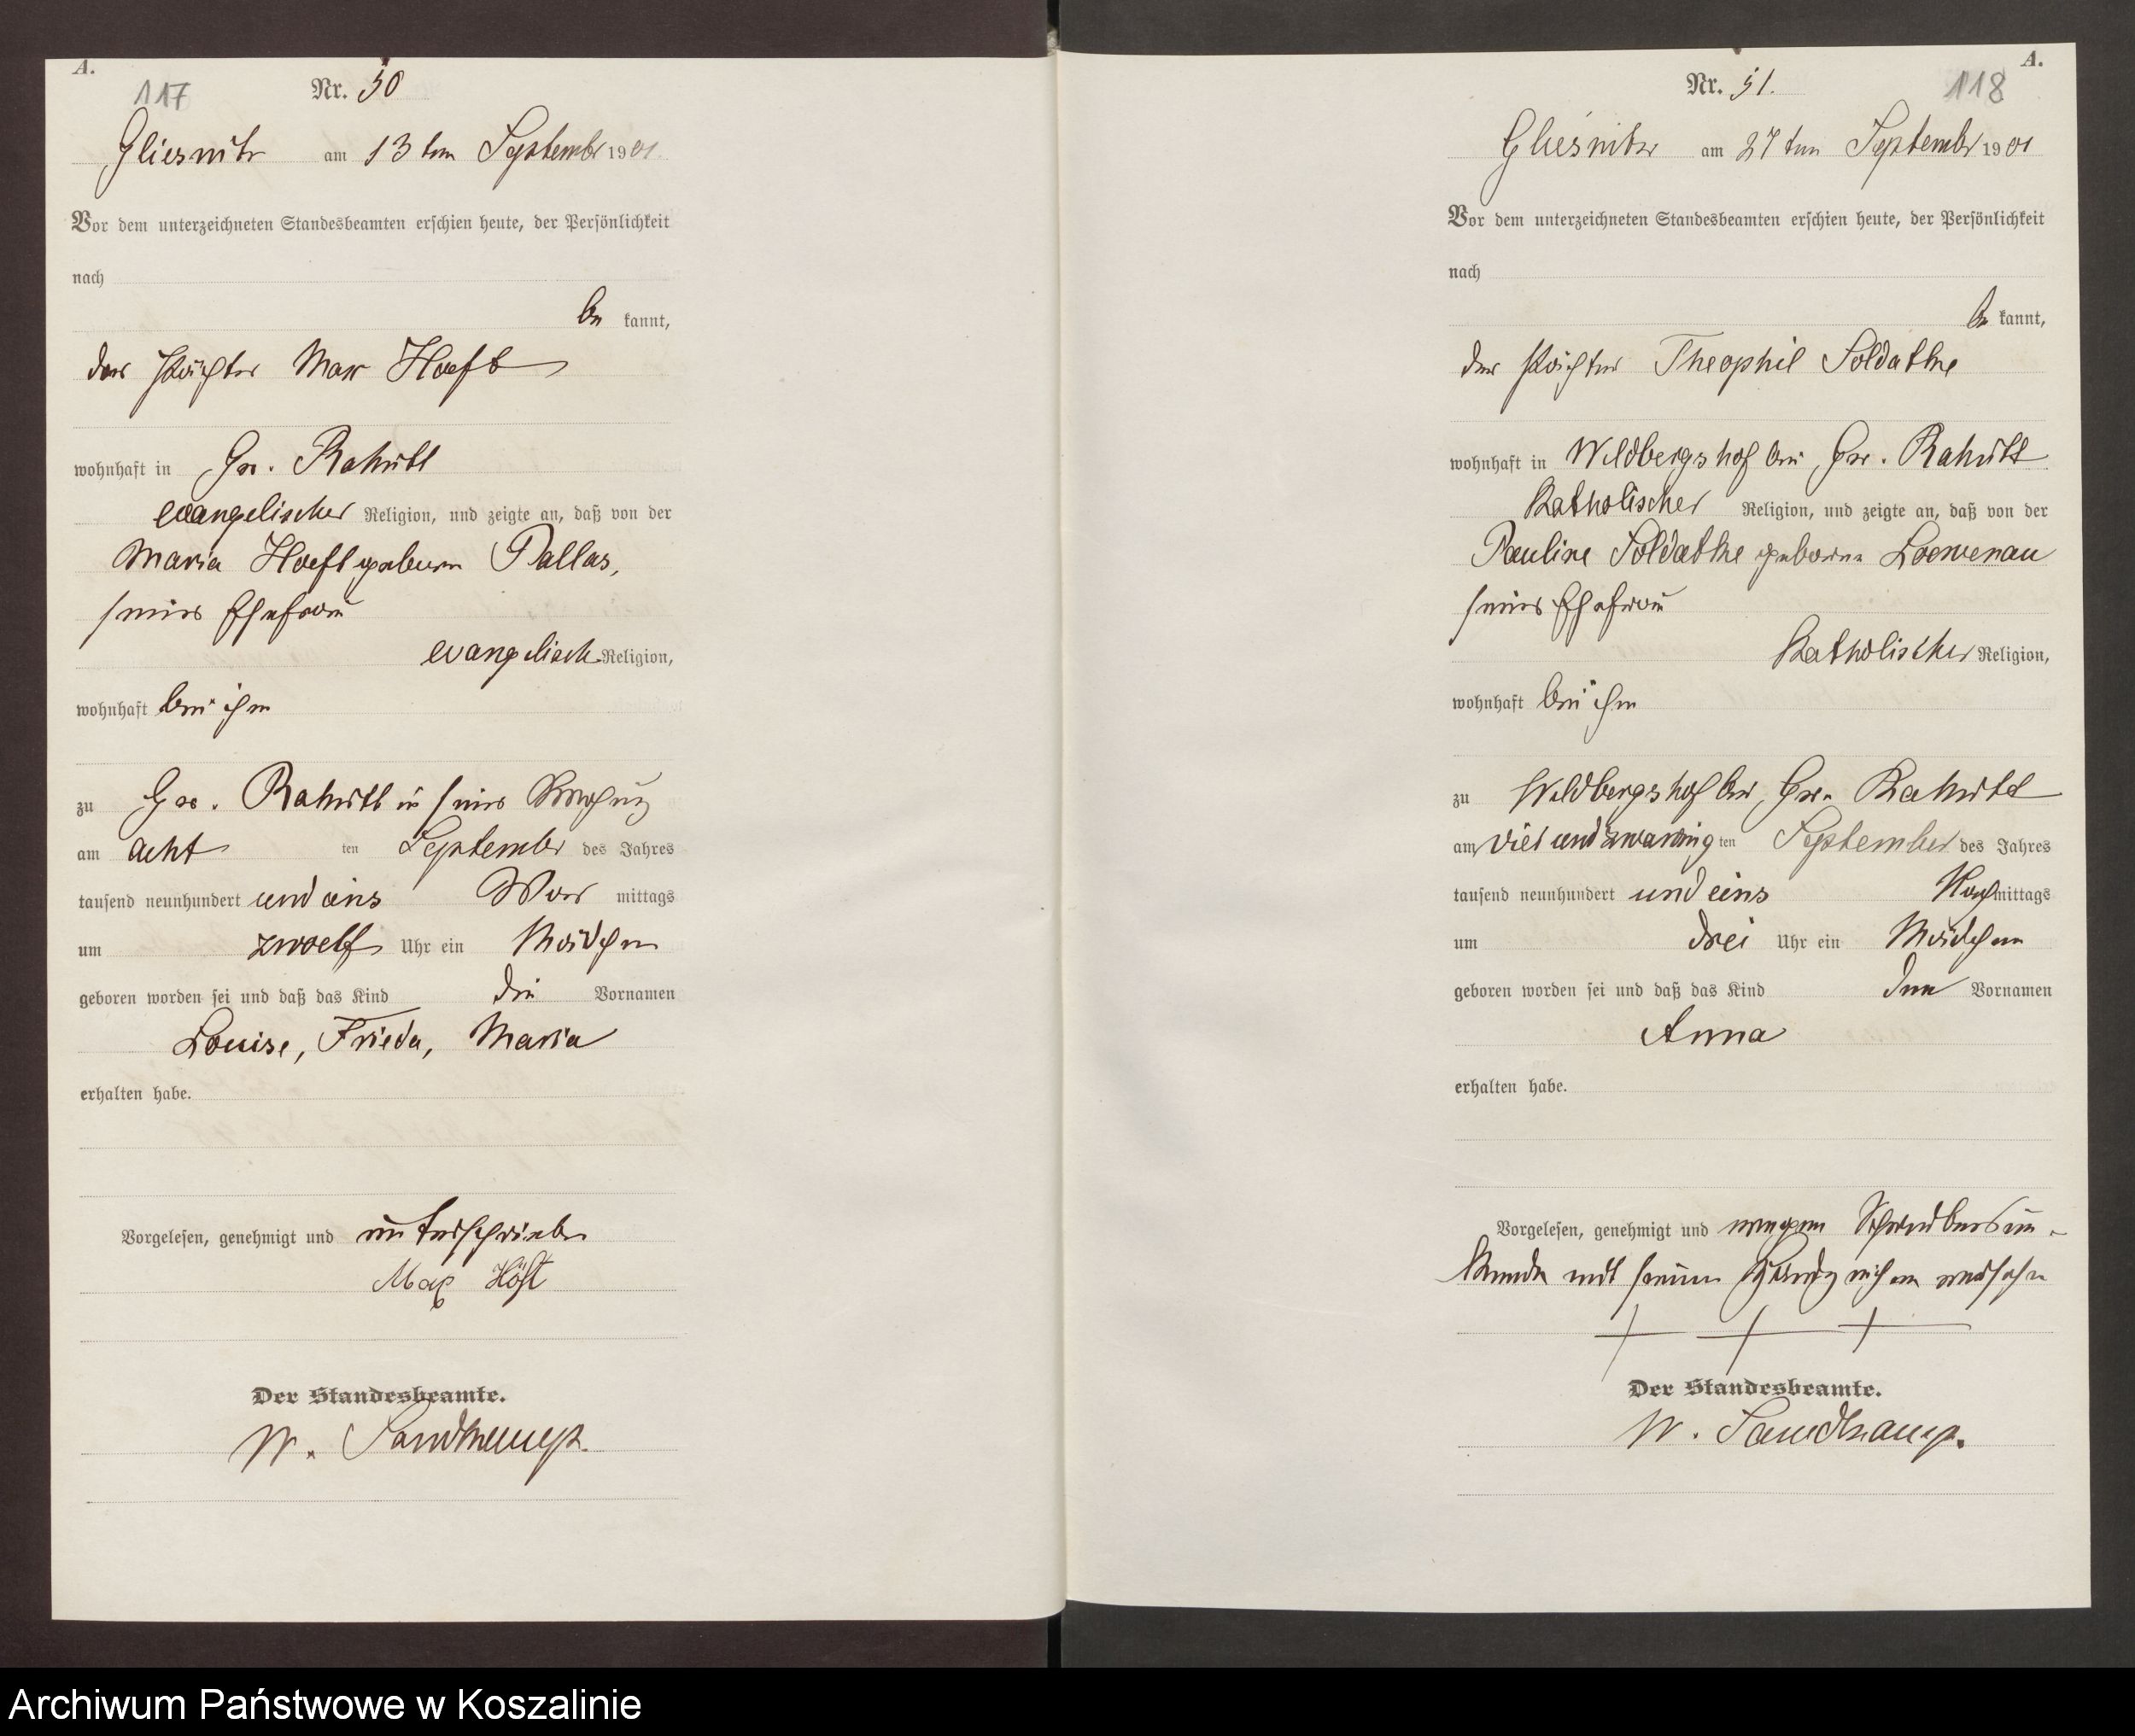 A.
117
Nr. 50
Gliesnitz am 13ten September 1901
Vor dem unterzeichneten Standesbeamten erschien heute, der Persönlichkeit
nach
be kannt,
der Pächter Max Hoeft
wohnhaft in Gr. Rakitt
evangelischer Religion, und zeigte an, daß von der
Maria Hoeft geborn Pallas,
seine Ehefrau
evangelisch Religion,
wohnhaft bei ihm
zu Gr. Rakitt in seine Wohnung
am acht ten September des Jahres
tausend neunhundert und eins Vor mittags
um zwoelf Uhr ein Mädchen
geboren worden sei und daß das Kind die Vornamen
Louise, Frieda, Maria
erhalten habe.
Vorgelesen, genehmigt und unterschrieben
Max Höft
Der Standesbeamte.
W. Sandkamp.
A.
118
Nr. 51.
Gliesnitz am 27ten September 1901
Vor dem unterzeichneten Standesbeamten erschien heute, der Persönlichkeit
nach
be kannt,
der Pächter Theophil Soldathe
wohnhaft in Wildbergshof bei Gr. Rakitt
Katholischer Religion, und zeigte an, daß von der
Pauline Soldathe geborne Loewenau
seine Ehefrau
Katholischer Religion,
wohnhaft bei ihm
zu Wildbergshof bei Gr. Rakitt
am vier und zwanzig ten September des Jahres
tausend neunhundert und eins Nach mittags
um drei Uhr ein Mädchen
geboren worden sei und daß das Kind den Vornamen
Anna
erhalten habe.
Vorgelesen, genehmigt und wegen Schreibens un-
kunde mit seinem Handzeichen versehen
+ + +
Der Standesbeamte.
W. Sandkamp.
Archiwum Państwowe w Koszalinie